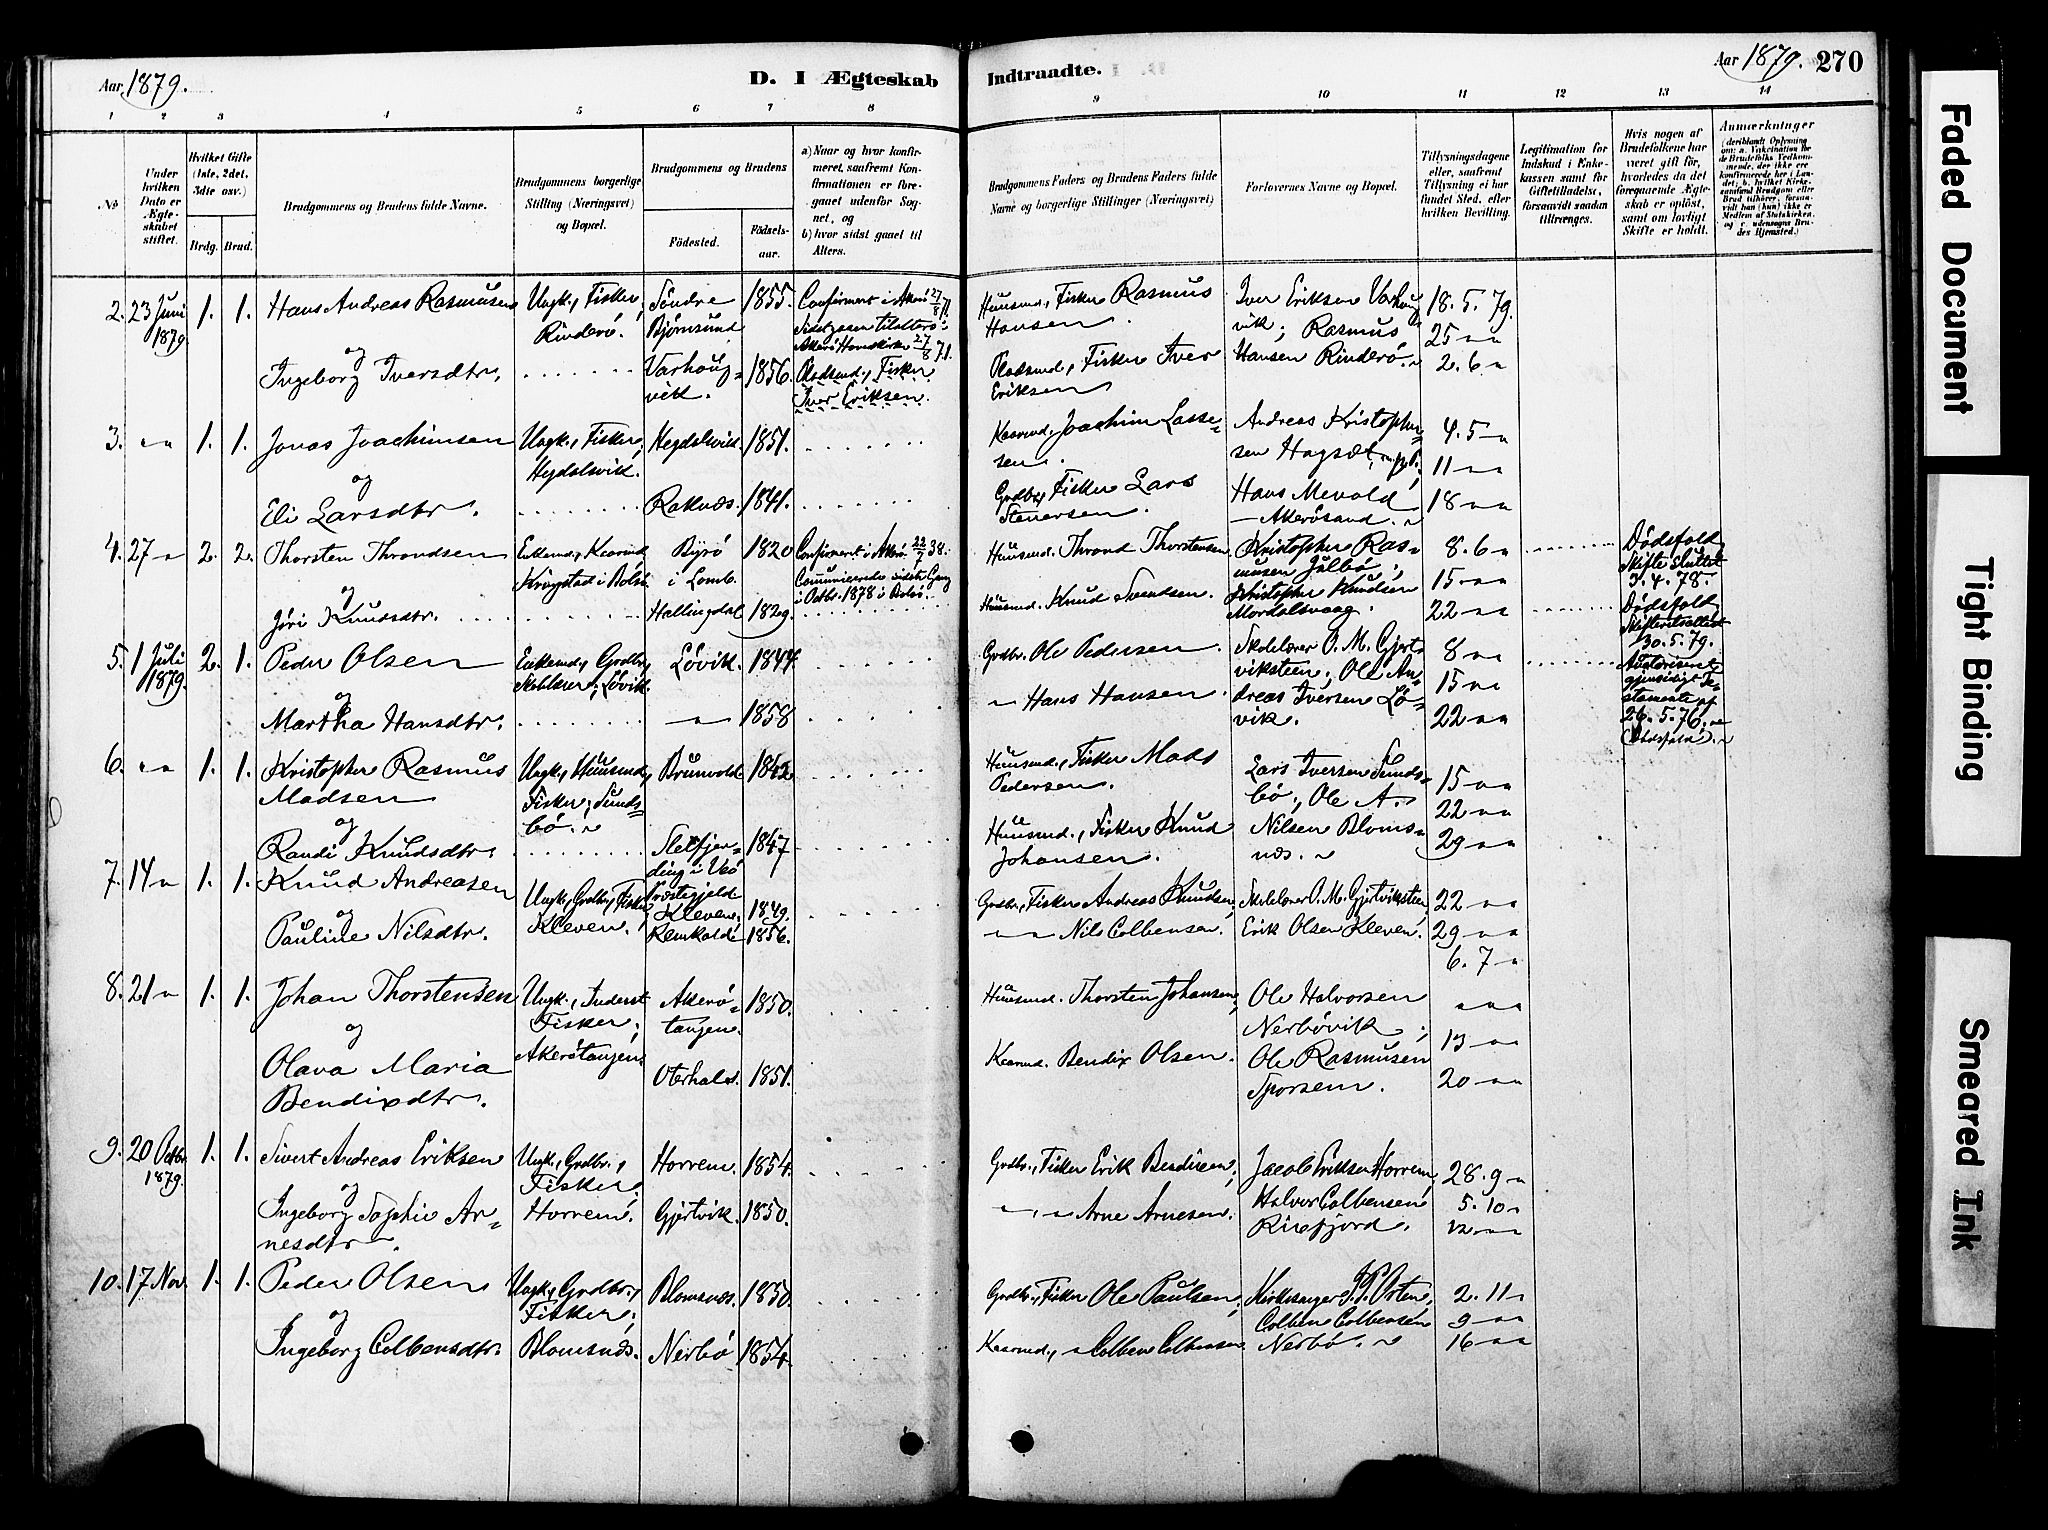 Aar 1879.
D. I Ægteskab Indtraadte.
Aar 1879. 270
1 2 3 4 5 6 7 8 9 10 11 12 13 14
No
Under hvilken Dato er Ægteskabet stiftet.
Hvilket Gifte (1ste, 2det, 3die osv.)
Brdg. Brud.
Brudgommens og Brudens fulde Navne.
Brudgommens borgerlige Stilling (Næringsvei) og Bopæl.
Brudgommens og Brudens
Födested.
Födselsaar.
a) Naar og hvor konfirmeret, saafremt Konfirmationen er foregaaet udenfor Sognet, og
b) hvor sidst gaaet til Alters.
Brudgommens Faders og Brudens Faders fulde Navne og borgerlige Stillinger (Næringsvei)
Forlovernes Navne og Bopæl.
Tillysningsdagene eller, saafremt Tillysning ei har fundet Sted, efter hvilken Bevilling.
Legitimation for Indskud i Enkekassen samt for Giftetilladelse, forsaavidt saadan tiltrænges.
Hvis nogen af Brudefolkene har været gift før, hvorledes da det foregaaende Ægteskab er opløst, samt om lovligt Skifte er holdt.
Anmærkninger
2. 23 Juni 1879 1. 1. Hans Andreas Rasmusen Ungk., Fisker, Rinderö. Söndre Björnsund 1855. Confirmert i Akerö 27/8 71.
Sidst gaaen til alters i Akerö Hovedkirke 27/8 71.
Huusmd., Fisker Rasmus Hansen. Iver Eriksen Varhougvik; Rasmus Hansen Rinderö. 18. 5. 79. 25 2. 6
og
Ingeborg Iversdtr. Varhougvik. 1856. Pladsmd., Fisker Iver Eriksen.
Pladsmd., Fisker Iver Eriksen
3. 1. 1. Jonas Joachimsen Ungk., Fisker, Hegdalsvik. Hegdalsvik. 1851.
Joachim Lassesen. Andreas Kristophersen Hagset, 4. 5 11 18
og
Eli Larsdtr. Raknæs. 1841. Grdbr., Fisker Lars Stenersen. Hans Mevold Akerösund.
4. 27 2. 2. Thorsten Throndsen Enkemd., Kringstad i Bolsö Byrö i Lomb. 1820 Confirmert i Akerö 22/7 38. Comunicerede sidste Gang i Octbr. 1878 i Bolsö.
Huusmd. Thrond Thorstensen Kristopher Rasmusen Julbö; Kristopher Knudsen Mordalsvaag. 8. 6 15 22 Dödsfald, Skifte sluttet 3. 4. 78.
og
Jöri Knudsdtr. Hellingdal 1829. Huusmd. Knud Svendsen. Dödsfald, 30. 5. 79.
5. 1 Juli 1879. 2. 1. Peder Olsen Enkemd., Grdbr., Skolelærer; Lövik. Lövik. 1844.
Grdbr. Ole Pedersen. Skolelærer O. M. Gjertviksteen; Ole Andreas Iversen Lövik. 8 15 22 Autoriseret gjensidigt Testamente af 26. 5. 76.
og
Martha Hansdtr. 1858 Hans Hansen.
6. 1. 1. Kristopher Rasmus Madsen Ungk., Huusmd., Fisker; Sundsbö. Brunvold 1842
Huusmd., Fisker Mads Pedersen. Lars Iversen Sundsbö; Ole A. Nilsen Blomsnæs. 15 22 29
og
Randi Knudsdtr. i Veö Præstegjeld 1847 Huusmd., Fisker Knud Johansen.
7. 14 1. 1. Knud Andreasen Ungk., Grdbr., Fisker, Kleven. Kleven; 1849.
Grdbr., Fisker Andreas Knudsen; Skolelærer O. M. Gjertviksteen; Erik Olsen Kleven. 22 29 6. 7
og
Pauline Nilsdtr. 1856. Nils Colbensen.
8. 21 1. 1. Johan Thorstensen Ungk., Inderst Fisker; Akerötangen. Akerötangen. 1850.
Huusmd. Thorsten Johansen; Ole Halvorsen Nerbövik; Ole Rasmusen Sporsem. 13 20
og
Olava Maria Bendixdtr. Oterhals. 1851. Bendix Olsen.
9. 20 Octbr. 1879. 1. 1. Sivert Andreas Eriksen Ungk., Grdbr., Fisker; Horrem. Horrem. 1854.
Grdbr., Fisker Erik Bendixen; Jacob Eriksen Horrem, Halvor Colbensen Rinfjord. 28. 9 5. 10 12
og
Ingeborg Sophie Arnesdtr. Gjertvik. 1850. Arne Arnesen.
10. 17 Nov. 1. 1. Peder Olsen Ungk., Grdbr., Fisker; Blomsnæs. Blomsnæs. 1850.
Grdbr., Fisker Ole Paulsen; Kirkesanger P. P. Osten, Colben Colbensen Nerbö. 2. 11 9 16
og
Ingeborg Colbensdtr. Nerbö 1854. Colben Colbensen
Faded Document
Tight Binding
Smeared Ink